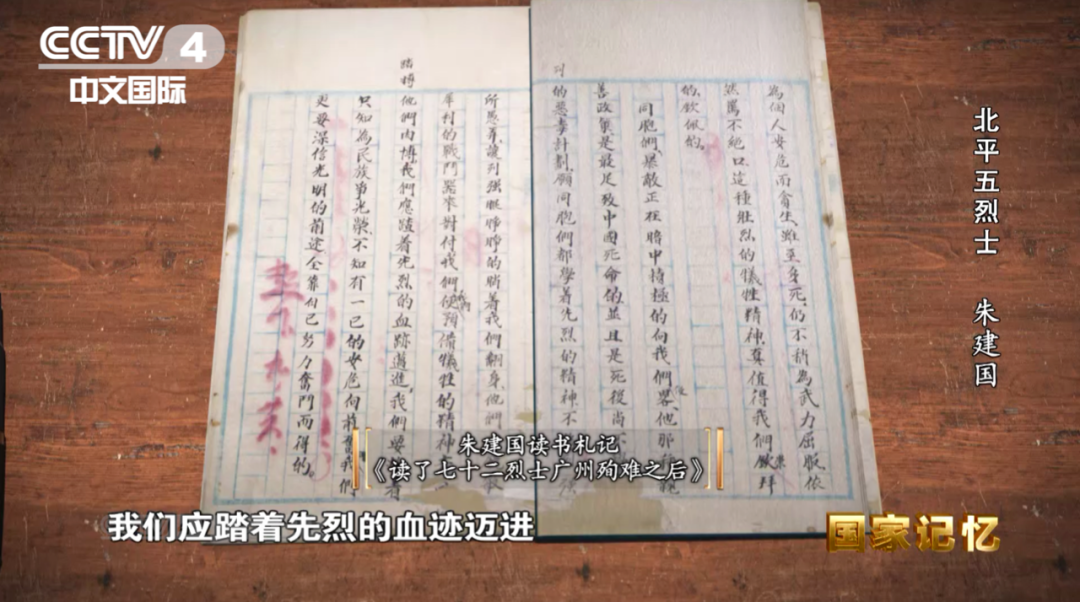 CCTV 4
中文国际
北平五烈士 朱建国
為個人安危而貪生、雖至身死、仍不稍為武力屈服、依
然罵不絕口、這種壯烈的犧牲精神、真值得我們欽拜
的、欽佩的。
同胞們、暴敵正在暗中積極的向我們畧、他那
善政策是最足致中國死命的、並且是死後尚
的惡毒計劃、願同胞們都學着先烈的精神不
所愚弄、讓列強睜睜的瞧着我們翻身、他們
犀利的戰鬥器來對付我們、便預備犧牲的精神
他們肉博、我們應踏着先烈的血跡邁進、我們要
只知為民族爭光榮、不知有一己的安危、向
我們
更要深信光明的前途全靠自己努力奮鬥而得的。
朱建国读书札记
《读了七十二烈士广州殉难之后》
我们应踏着先烈的血迹迈进
国家记忆